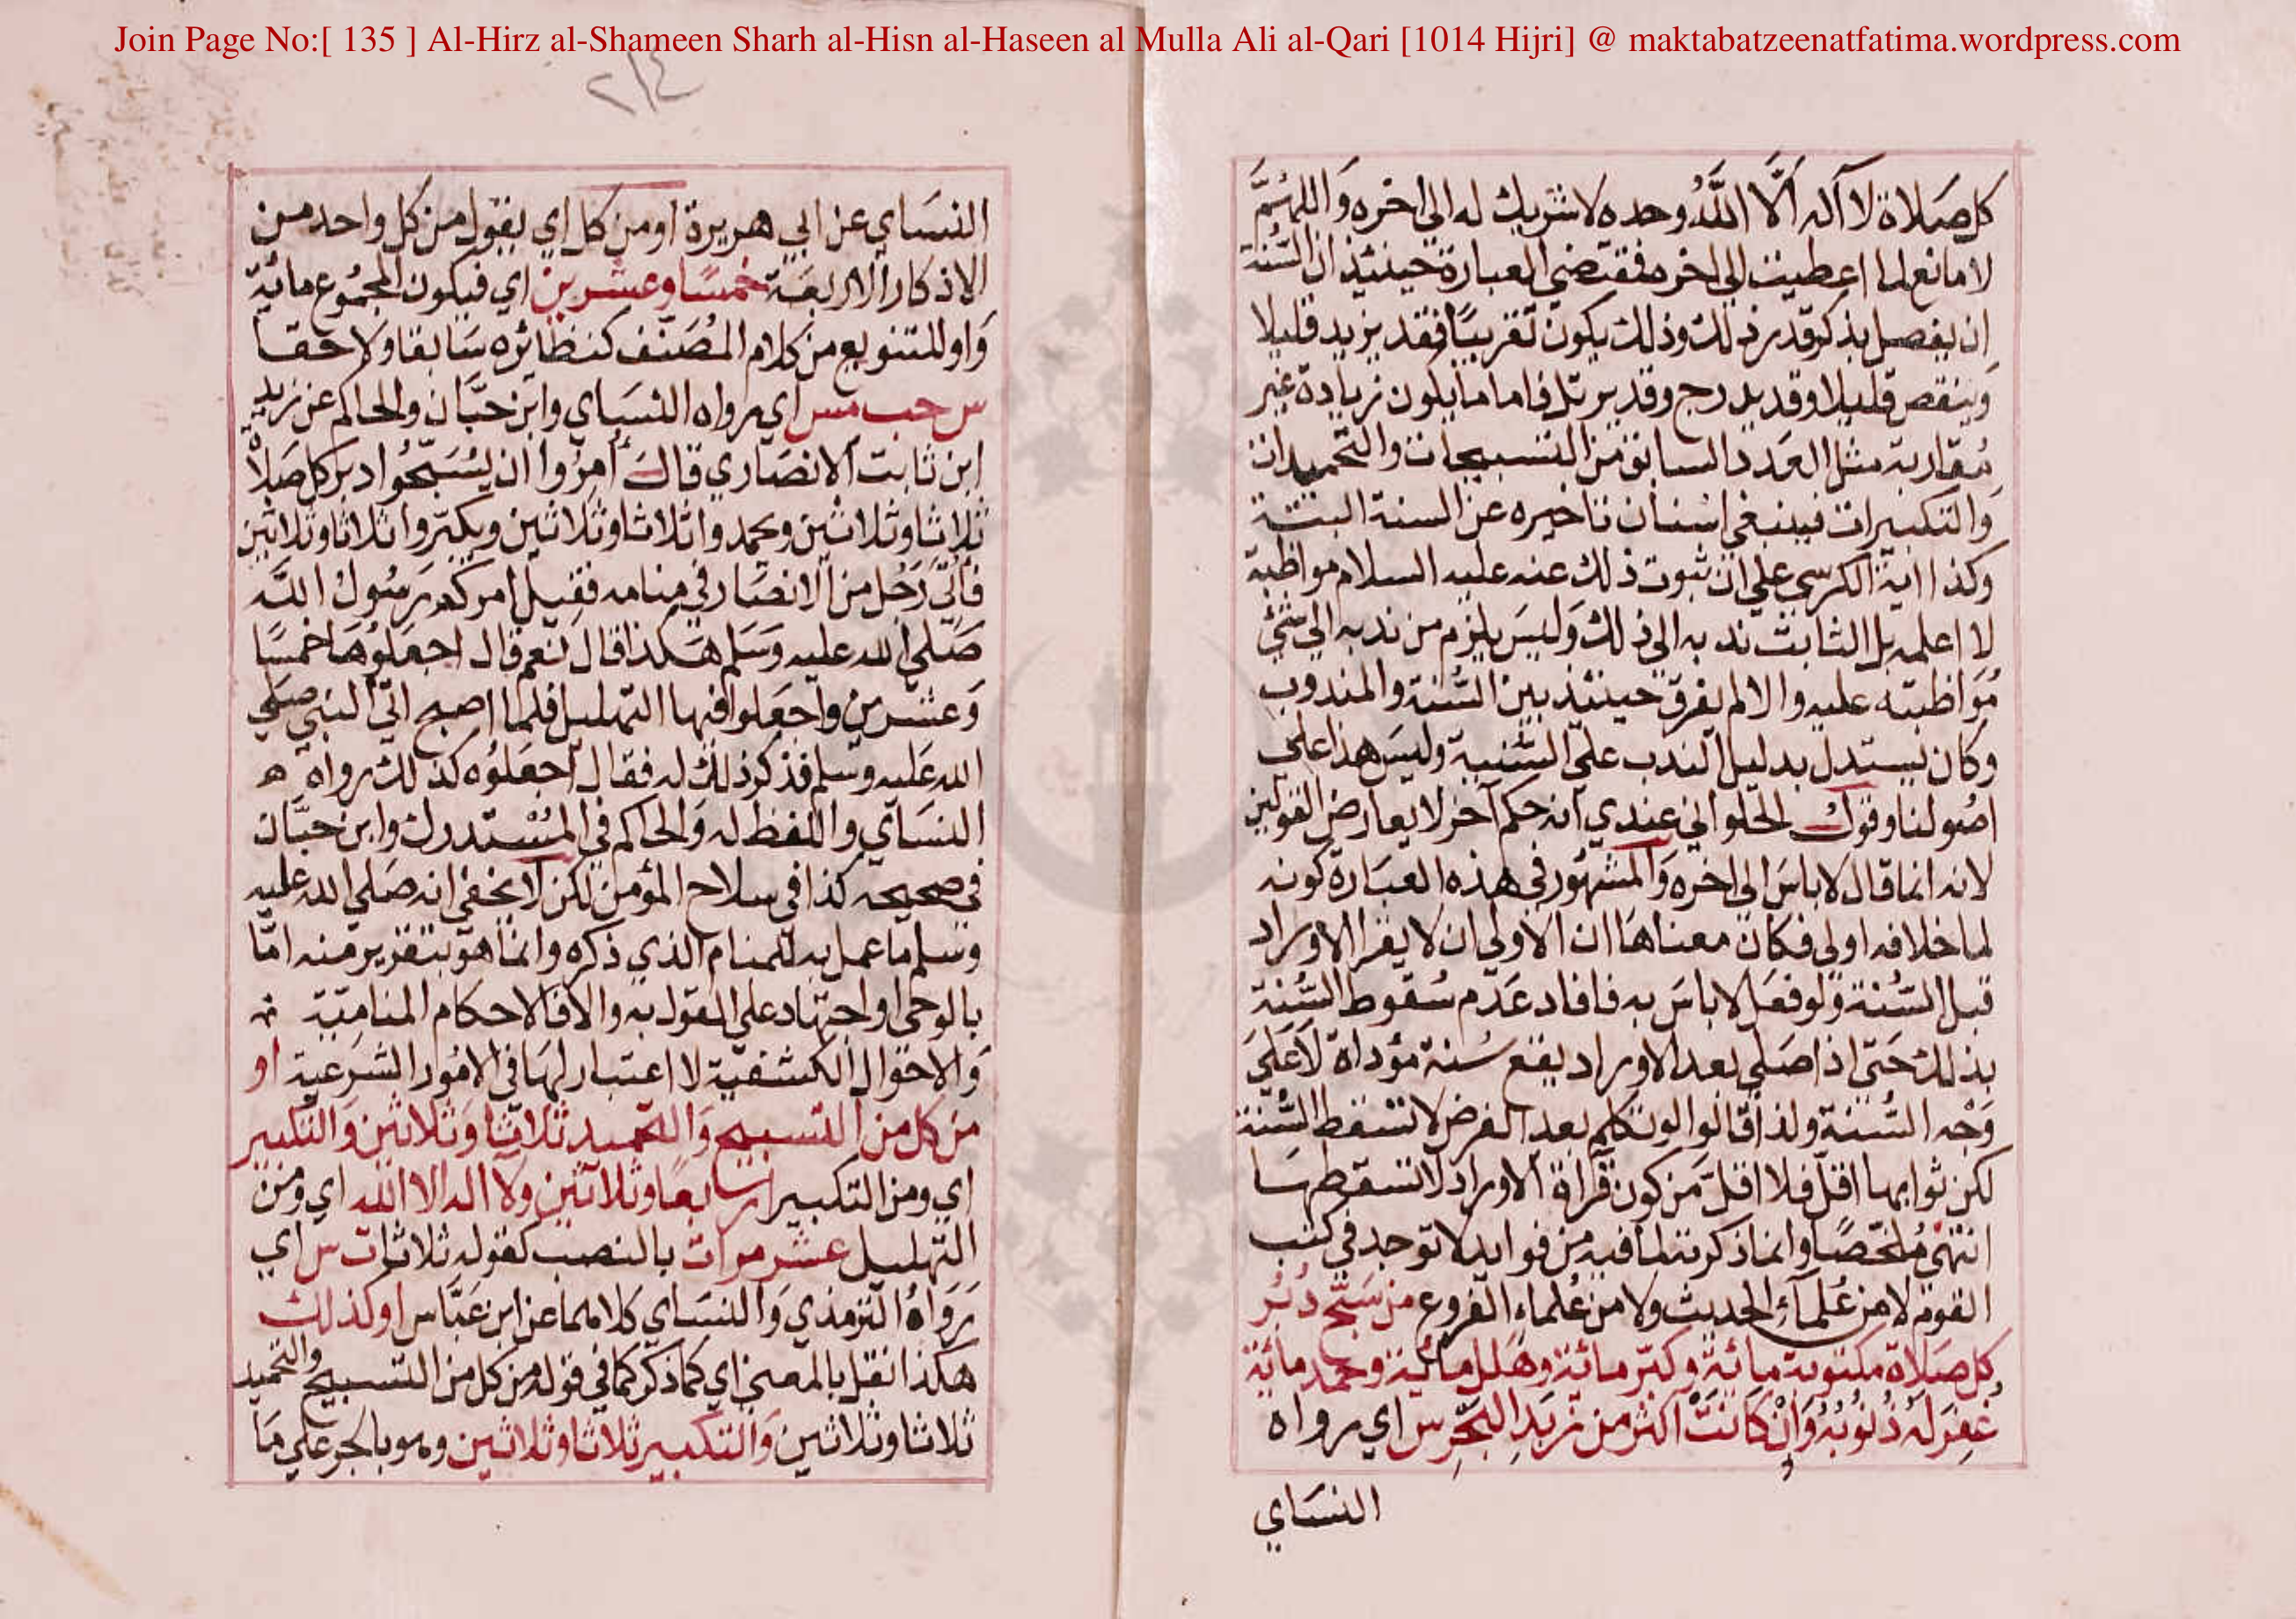 Join Page No:[ 135 ] Al-Hirz al-Shameen Sharh al-Hisn al-Haseen al Mulla Ali al-Qari [1014 Hijri] @ maktabatzeenatfatima.wordpress.com
كل صلاة لا اله الا الله وحده لا شريك له الي اخره واللهم
لا مانع لما اعطيت الي اخره فمقتضي العبارة حينئذ ان السنة
ان يفصل بذكر قدر ذلك وذلك يكون تقريبا فقد يزيد قليلا
وينقص قليلا وقد يدرج وقد يرتل فاما ما يكون زيادة غير
مقاربة مثل العدد السابق من التسبيحات والتحميدات
والتكبيرات فينبغي استنان تاخيره عن السنة البتة
وكذا اية الكرسي علي ان ثبوت ذلك عنه عليه السلام مواظبة
لا اعلمه بل الثابت ندبه الي ذلك وليس يلزم من ندبه الي شئ
مواظبته عليه والا لم يفرق حينئذ بين السنة والمندوب
وكان يستدل بدليل الندب علي السنية وليس هذا علي
اصولنا وقول الحلواني عندي انه حكم آخر لا يعارض القولين
لانه انما قال لا باس الي اخره والمشهور في هذه العبارة كونه
لما خلافه اولي فكان معناها ان الاولي ان لا يقرا الاوراد
قبل السنة ولو فعل لا باس به فافاد عدم سقوط السنة
بذلك حتي اذا صلي بعد الاوراد يقع سنة مؤداة لا علي
وجه السنة ولذا قالوا لو تكلم بعد الفرض لا تسقط السنة
لكن ثوابها اقل فلا اقل من كون قراة الاوراد لا تسقطها
انتهي ملخصا وانما ذكرته لما فيه من فوايد لا توجد في كتب
القوم لا من علماء الحديث ولا من علماء الفروع من سبح دبر
كل صلاة مكتوبة مائة وكبر مائة وهلل مائة وحمد مائة
غفر له ذنوبه وان كانت اكثر من زبد البحر س اي رواه
النساي
٢١٤
النساي عن ابي هريرة او من كل اي يقول من كل واحد من
الاذكار الاربعة خمسا وعشرين اي فيكون المجموع مائة
واو للتنويع من كلام المصنف كنظائره سابقا ولاحقا
س حب مس اي رواه النساي وابن حبان والحاكم عن زيد
ابن ثابت الانصاري قال أمروا ان يسبحوا دبر كل صلاة
ثلاثا وثلاثين ويحمدوا ثلاثا وثلاثين ويكبروا ثلاثا وثلاثين
فاتي رجل من الانصار في منامه فقيل امركم رسول الله
صلي الله عليه وسلم هكذا قال نعم قال اجعلوها خمسا
وعشرين واجعلوا فيها التهليل فلما اصبح اتي النبي صلي
الله عليه وسلم فذكر ذلك له فقال اجعلوه كذلك رواه
النساي واللفظ له والحاكم في المستدرك وابن حبان
في صحيحه كذا في سلاح المؤمن لكن لا يخفي انه صلي الله عليه
وسلم ما عمل به للمنام الذي ذكره وانما هو بتقرير منه اما
بالوحي او اجتهاد علي القول به والا فالاحكام المنامية
والاحوال الكشفية لا اعتبار لها في الامور الشرعية او
من كل من التسبيح والتحميد ثلاثا وثلاثين والتكبير
اي ومن التكبير اربعا وثلاثين ولا اله الا الله اي ومن
التهليل عشر مرات بالنصب كقوله ثلاثا ت س اي
رواه الترمذي والنساي كلاهما عن ابن عباس او كذلك
هكذا نقل بالمعني اي كما ذكر كما في قوله من كل من التسبيح والتحميد
ثلاثا وثلاثين والتكبير ثلاثا وثلاثين وهو بالجر علي ما